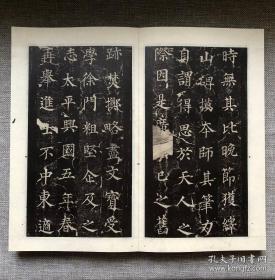 時無其比晚節獲嶧
山碑摸本師其筆力
自謂得思於天人之
際因是廣己之舊
跡焚擲略盡文寶受
學徐門粗堅企及之
志太平興國五年春
再舉進士不中東適
孔夫子旧书网